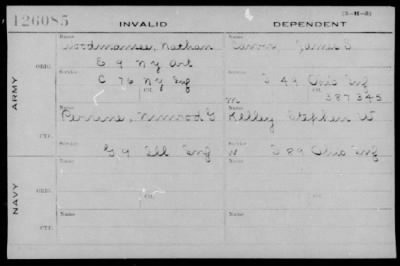 126085
INVALID
DEPENDENT
(3-H-2)
Name
Woodmansee, Nathan
Name
Carver James O
ARMY
ORIG.
Service
E 9 N.Y. Art
C 76 N.Y. Inf
Service
I 49 Ohio Inf
Ctf.
m 387345
Name
Perrine, Nimrod G
Name
Kelley Stephen W
CTF.
Service
G 9 Ill Inf
Service
W I 89 Ohio Inf
NAVY
ORIG.
Name
Name
Service
Service
Ctf.
CTF.
Name
Name